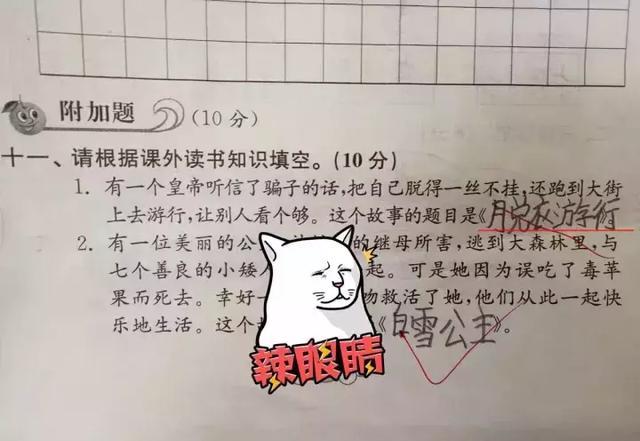 附加题 (10分)
十一、请根据课外读书知识填空。(10分)
1. 有一个皇帝听信了骗子的话,把自己脱得一丝不挂,还跑到大街
上去游行,让别人看个够。这个故事的题目是《脱衣游街
2. 有一位美丽的公 的继母所害,逃到大森林里,与
七个善良的小矮人 起。可是她因为误吃了毒苹
果而死去。幸好一 物救活了她,他们从此一起快
乐地生活。这个 《白雪公主》。
辣眼睛